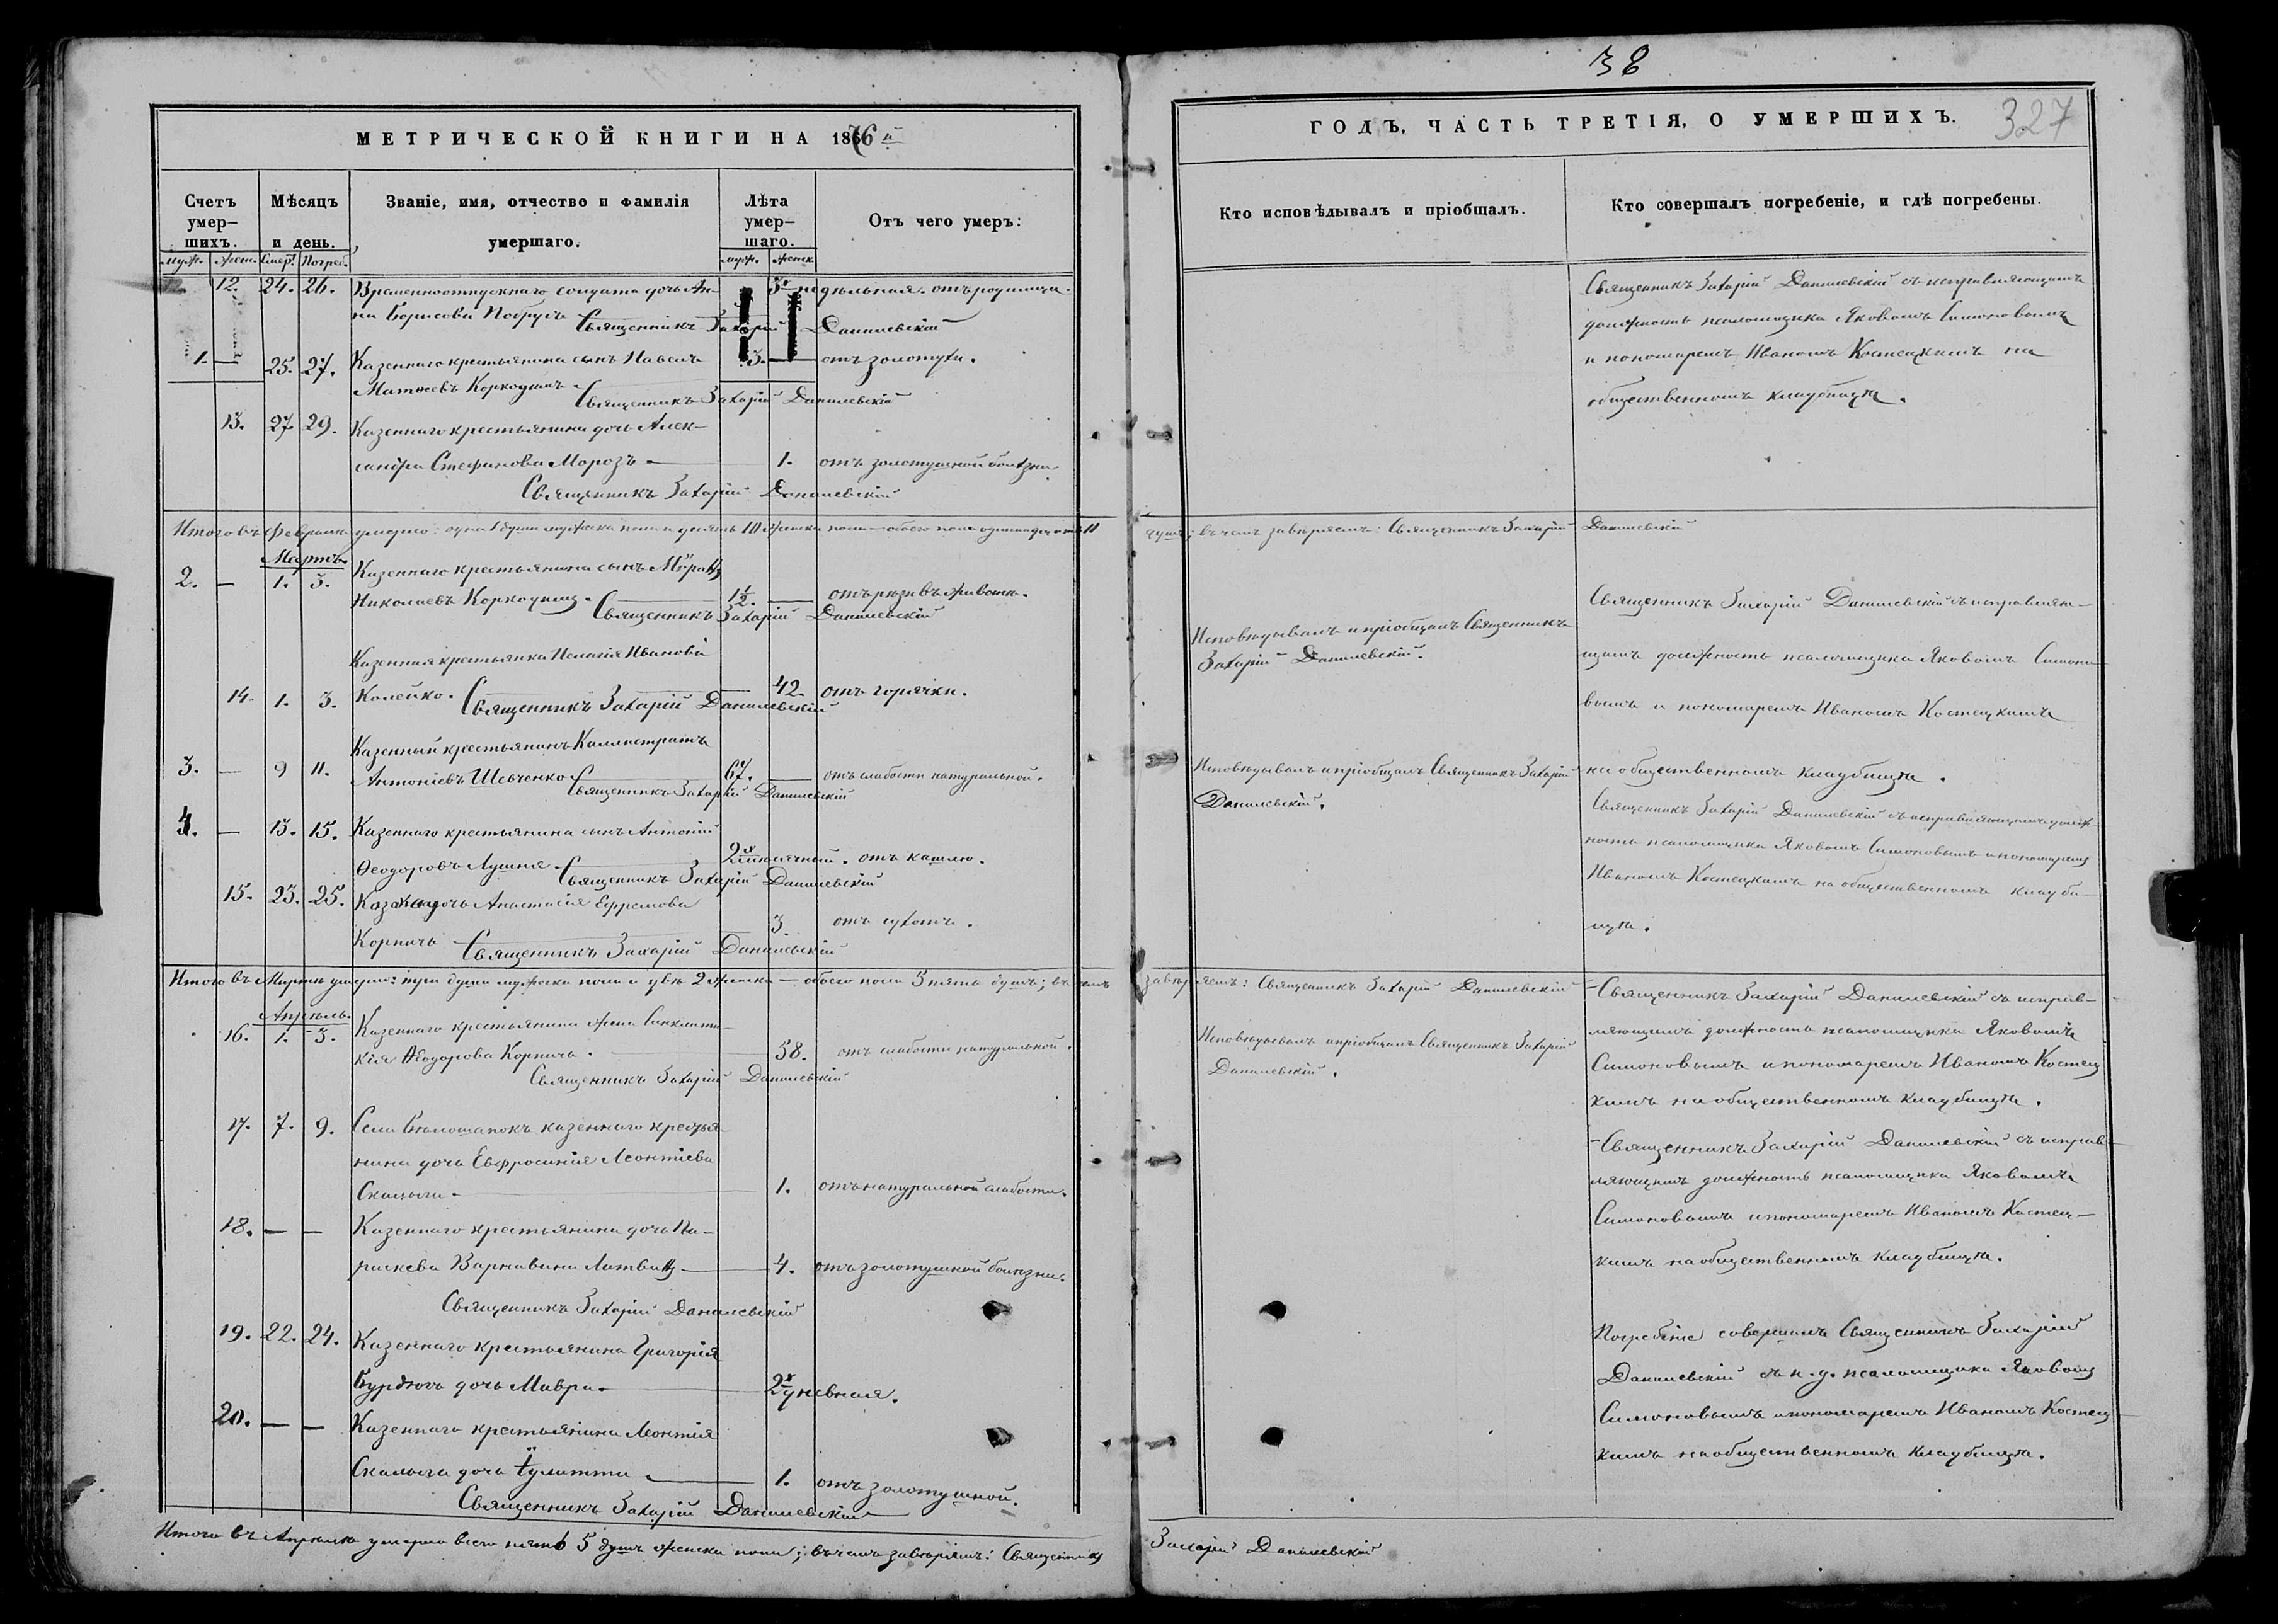 38
327
МЕТРИЧЕСКОЙ КНИГИ НА 1876й
ГОДЪ, ЧАСТЬ ТРЕТІЯ, О УМЕРШИХЪ.
Счетъ умер-шихъ.
Мѣсяцъ и день.
Званіе, имя, отчество и фамилія умершаго.
Лѣта умер-шаго.
Отъ чего умеръ:
Кто исповѣдывалъ и пріобщалъ.
Кто совершалъ погребеніе, и гдѣ погребены.
муж. женс. Смер. Погреб. муж. женск.
12. 24. 26. Временноотпускнаго солдата дочь Ан-
на Борисова 3х недѣльная.
Священникъ Захарій Данилевскій
1. — 25. 27. Казеннаго крестьянина сынъ Павелъ 3. — отъ золотухи.
Матѳеевъ
Священникъ Захарій Данилевскій
13. 27. 29. Казеннаго крестьянина дочь Алек-
сандра Стефанова Морозъ — 1. отъ золотушной болѣзни
Священникъ Захарій Данилевскій
Священникъ Захарій Данилевскій съ исправляющимъ
должность псаломщика Яковомъ Симоновымъ
и пономаремъ Иваномъ Костецкимъ на
общественномъ кладбищѣ.
Итого въ Февралѣ умерло: одна 1 душа мужеска пола и десять 10 женска пола — обоего пола одинадцать 11
душъ; въ чемъ завѣряемъ: Священникъ Захарій Данилевскій
Мартъ.
2. — 1. 3. Казеннаго крестьянина сынъ
Николаевъ 1½. — отъ рѣзи въ животѣ.
Священникъ Захарій Данилевскій
Казенная крестьянка Пелагія Иванова
14. 1. 3. Колейко. — 42. отъ горячки.
Священникъ Захарій Данилевскій
Исповѣдывалъ и пріобщалъ Священникъ
Захарій Данилевскій.
Священникъ Захарій Данилевскій съ исправляю-
щимъ должность псаломщика Яковомъ Симоно-
вымъ и пономаремъ Иваномъ Костецкимъ
на общественномъ кладбищѣ.
Казенный крестьянинъ Каллистратъ
3. — 9 11. Антоніевъ Шевченко. 67. — отъ слабости натуральной.
Священникъ Захарій Данилевскій
Исповѣдывалъ и пріобщалъ Священникъ Захарій
Данилевскій.
4. — 13. 15. Казеннаго крестьянина сынъ Антоній
Ѳеодоровъ 2х мѣсячный. отъ кашлю.
Священникъ Захарій Данилевскій
15. 23. 25. Казака дочь Анастасія Ефремова
Корпичъ — 3. отъ сухотъ.
Священникъ Захарій Данилевскій
Священникъ Захарій Данилевскій съ исправляющимъ долж-
ность псаломщика Яковомъ Симоновымъ и пономаремъ
Иваномъ Костецкимъ на общественномъ кладби-
щѣ.
Итого въ Мартѣ умерло: три души мужеска пола и двѣ 2 женска — обоего пола 5 пять душъ; въ чемъ
завѣряемъ: Священникъ Захарій Данилевскій
Апрѣль.
16. 1. 3. Казеннаго крестьянина жена Синклити-
кія Ѳеодорова Корпичъ. — 58. отъ слабости натуральной.
Священникъ Захарій Данилевскій
Исповѣдывалъ и пріобщалъ Священникъ Захарій
Данилевскій.
Священникъ Захарій Данилевскій съ исправ-
ляющимъ должность псаломщика Яковомъ
Симоновымъ и пономаремъ Иваномъ Костец-
кимъ на общественномъ кладбищѣ.
17. 7. 9. Села Бѣлошапокъ казеннаго крестья-
нина дочь Евфросинія Леонтіева
— 1. отъ натуральной слабости.
18. — — Казеннаго крестьянина дочь Па-
раскева Варнавина — 4. отъ золотушной болѣзни.
Священникъ Захарій Данилевскій
Священникъ Захарій Данилевскій съ исправ-
ляющимъ должность псаломщика Яковомъ
Симоновымъ и пономаремъ Иваномъ Костец-
кимъ на общественномъ кладбищѣ.
19. 22. 24. Казеннаго крестьянина Григорія
дочь Мавра — 2х дневная.
20. — — Казеннаго крестьянина Леонтія
дочь — 1. отъ золотушной.
Священникъ Захарій Данилевскій
Погребеніе совершилъ Священникъ Захарій
Данилевскій съ и. д. псаломщика Яковомъ
Симоновымъ и пономаремъ Иваномъ Костец-
кимъ на общественномъ кладбищѣ.
Итого въ Апрѣлѣ умерло всего пять 5 душъ женска пола; въ чемъ завѣряемъ: Священникъ
Захарій Данилевскій